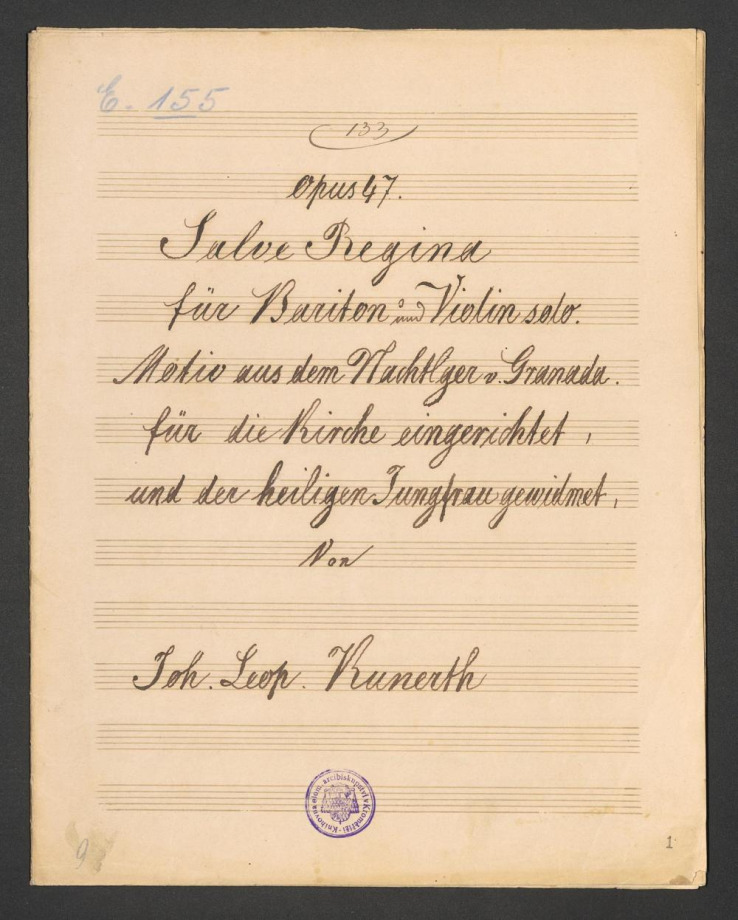 E. 155
133
Opus 47.
Salve Regina
für Bariton und Violin solo.
Motiv aus dem Nachtlger v. Granada.
für die Kirche eingerichtet,
und der heiligen Jungfrau gewidmet,
Von
Joh. Leop. Kunerth
Knihovna olom. arcibiskupství v Kroměříži
9
1